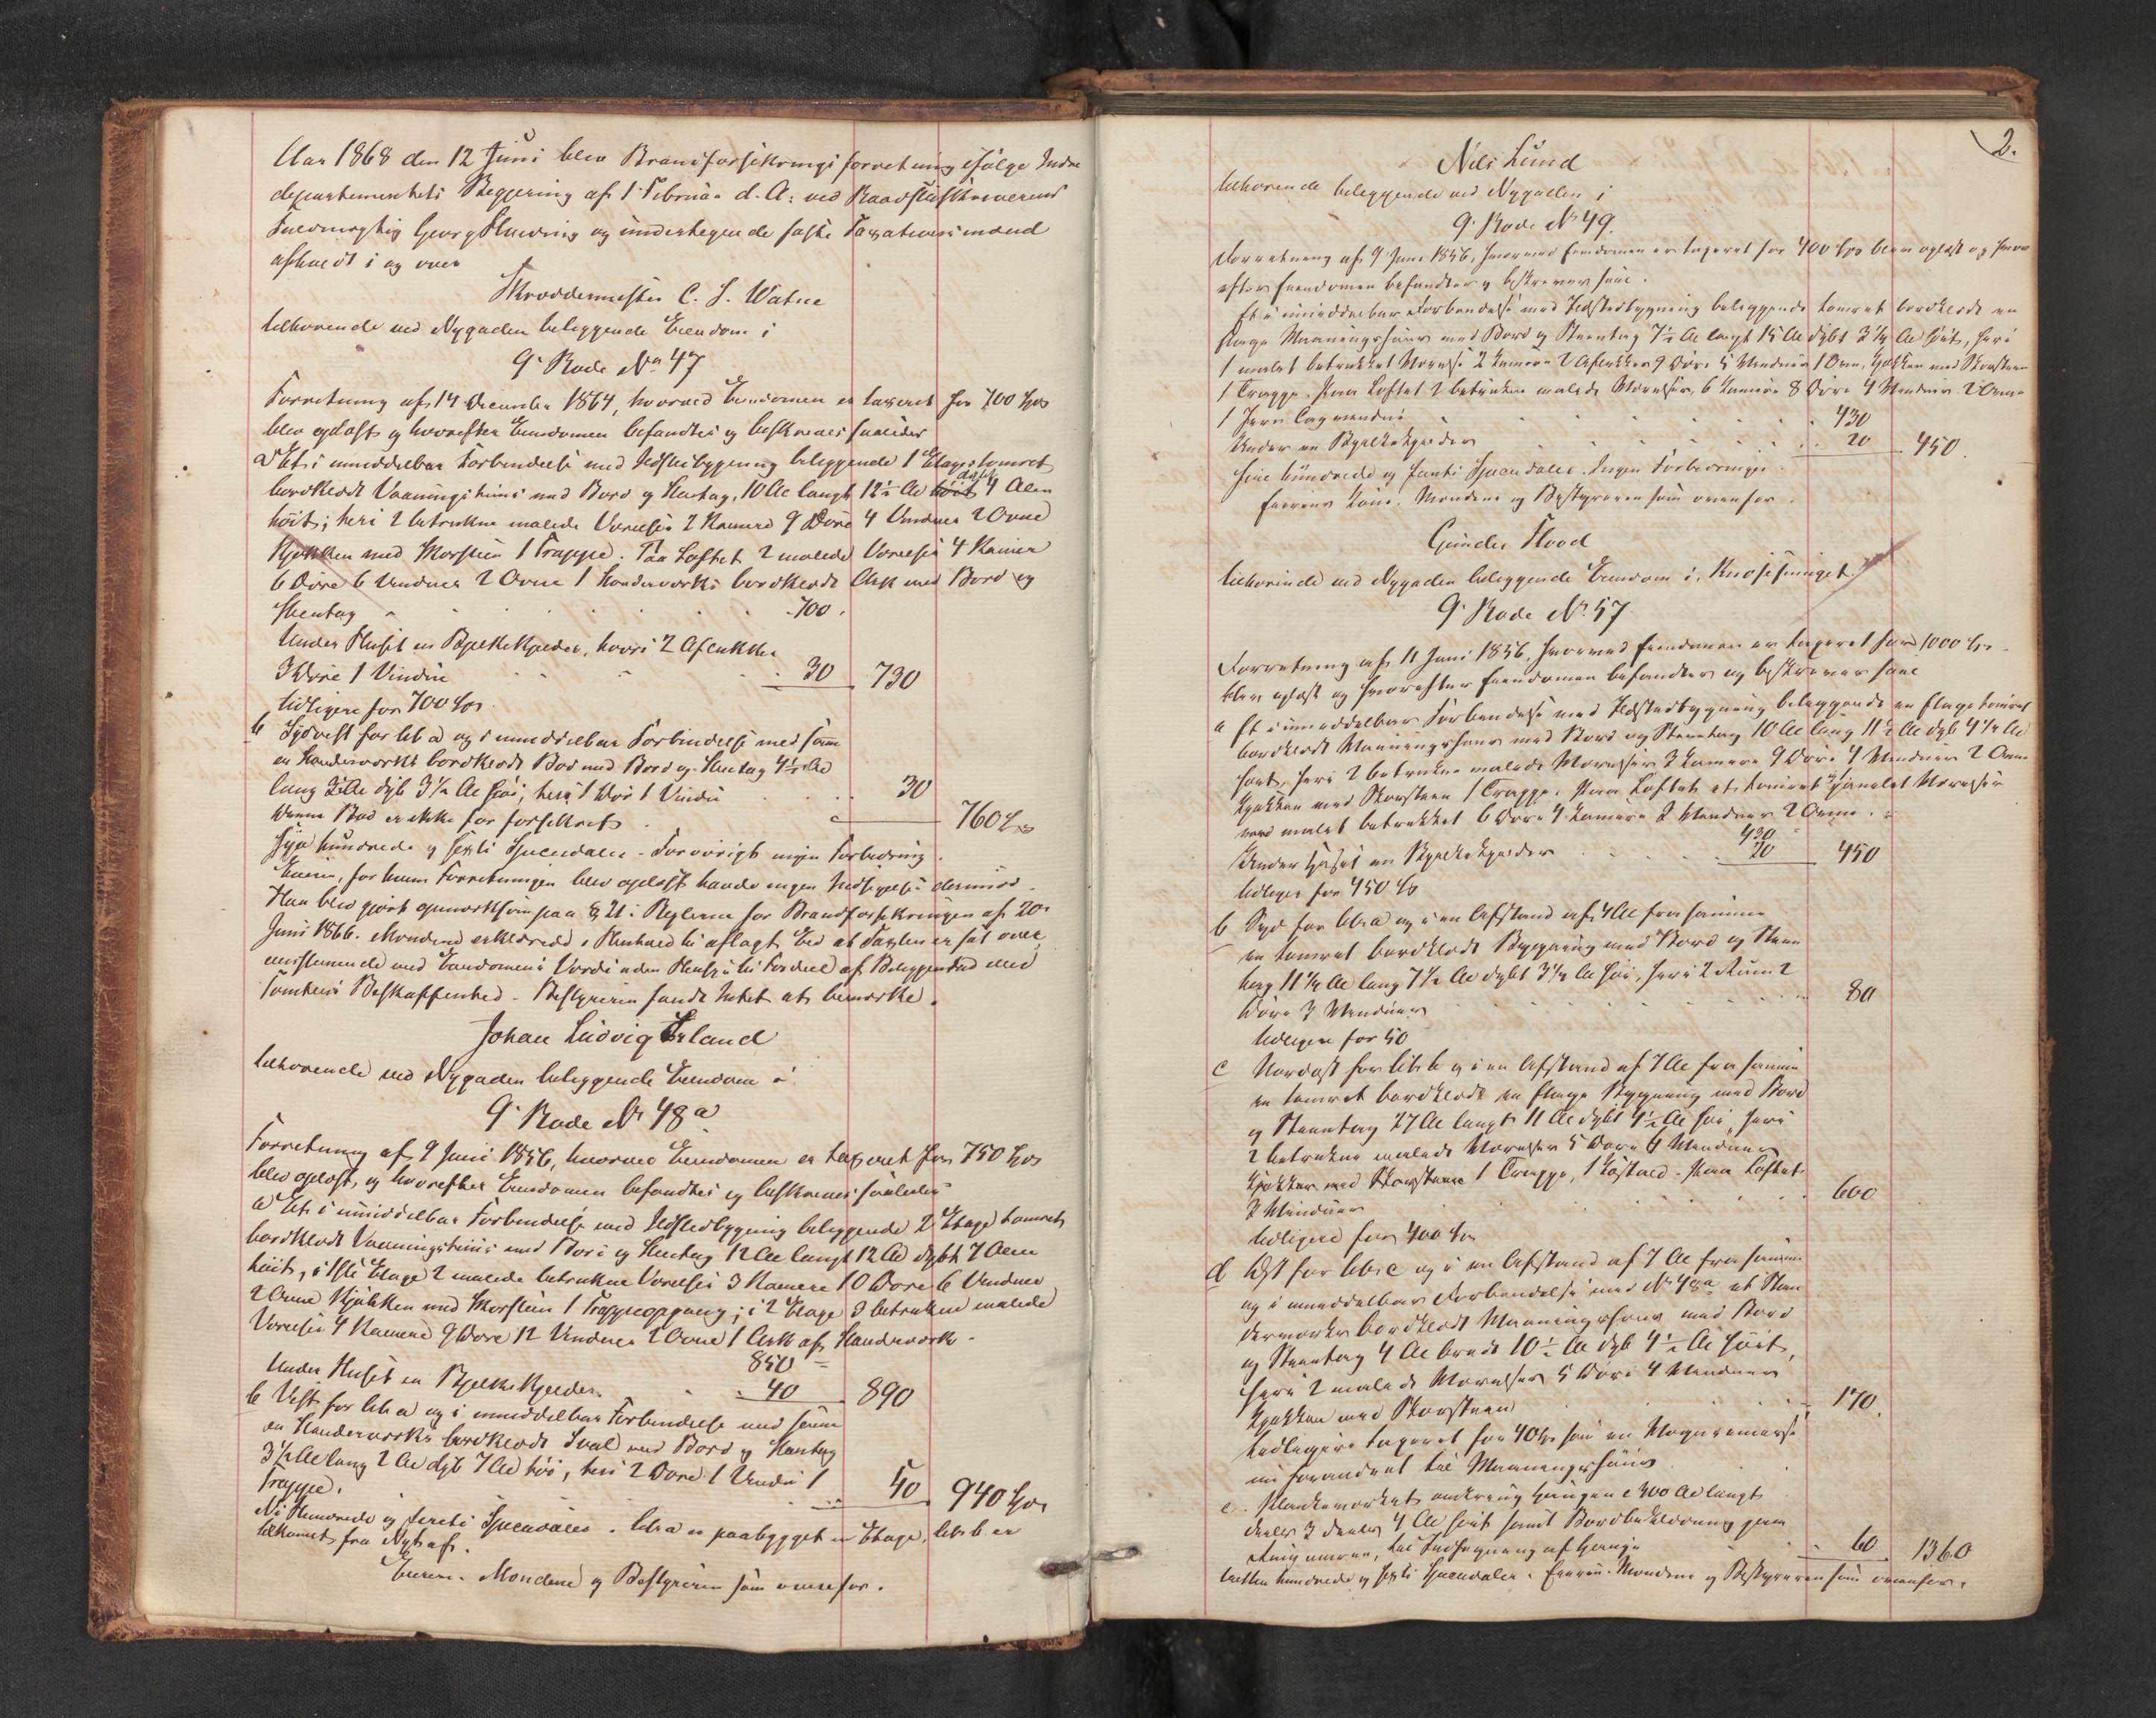 Aar 1868 den 12 Juni blev Brandforsikringsforretning ifølge Indre
departementets Begjering af 1 Februar d. A: ved Raadstuskriverens
Fuldmægtig Georg Fleischer og undertegnede faste Taxationsmænd
afholdt i og over
Skræddermester C. S. Watne
tilhørende ved Nygaden beliggende Eiendom i
9' Rode No 47
Forretning af 14 December 1864, hvorved Eiendomen er taxeret for 700 Spd
blev oplæst og hvorefter Eiendomen befandtes og beskrives saaledes
a Et i umiddelbar Forbindelse med Ildstedbygning beliggende 1 Etages tømret
bordklædt Vaaningshuus med Bord og Steentag, 10 Al langt 12½ Al dybt 4 Alen
høit; heri 2 betrukne malede Værelser 2 Kamere 9 Døre 4 Vinduer 2 Ovne
Kjøkken med Skorsteen 1 Trappe. Paa Loftet 2 malede Værelser 4 Kamer
6 Døre 6 Vinduer 2 Ovne 1 Standerværks bordklædt Ark med Bord og
Steentag 700.
Under Huset en Bjelkekjelder, hvori 2 Aflukker
3 Døre 1 Vindue 30 730
tidligere for 700 Spd
b Sydvest for litr a og i umiddelbar Forbindelse med samme
en Standerværks bordklædt Bod med Bord og Steentag 4½ Al
lang 3 Al dyb 3½ Al høi, heri 1 Dør 1 Vindue 30
denne Bod er ikke før forsikret 760 Spd
Syv hundrede og sexti Speciedaler - Forøvrigt ingen Forbedring.
Eieren, for hvem Forretningen blev oplæst havde ingen Indsigelse derimod.
Han blev gjort opmærksom paa § 21 i Reglerne for Brandforsikringen af 20
Juni 1866. Mændene erklærede i Henhold til aflagt Ed at Taxten er sat overe
ensstemmende med Eiendomens Værdi uden Hensyn til Fordeel af Beliggenhed eller
Tomtens Beskaffenhed - Bestyreren fandt Intet at bemærke.
Johan Ludvig Erland
tilhørende ved Nygaden beliggende Eiendom i
9' Rode No 48 a
Forretning af 9 Juni 1856, hvorved Eiendomen er taxeret for 750 Spd
blev oplæst, og hvorefter Eiendomen befandtes og beskrives saaledes
a Et i umiddelbar Forbindelse med Ildstedbygning beliggende 2 Etages tømret
bordklædt Vaaningshuus med Bord og Steentag 12 Al langt 12 Al dybt 7 Alen
høit, i 1ste Etage 2 malede betrukne Værelser 3 Kamere 10 Døre 6 Vinduer
2 Ovne Kjøkken med Skorsteen 1 Trappeopgang; i 2 Etage 3 betrukne malede
Værelser 4 Kamere 9 Døre 12 Vinduer 2 Ovne 1 Ark af Standerværk -
850
Under Huset en Bjelkekjelder. 40 890
b Vest for litr a og i umiddelbar Forbindelse med samme
en Standerværks bordklædt Sval med Bord og Steentag
3½ Al lang 2 Al dyb 7 Al høi, heri 2 Døre 1 Vindue 1
Trappe. 50 940 Spd
Ni Hundrede og Firti Speciedaler. litr a er paabygget en Etage, litr b er
tilkomet fra Nyt af.
Eieren. Mændene og Bestyreren som ovenfor.
2.
Nils Lund
tilhørende beliggende ved Nygaden i
9' Rode No 49.
Forretning af 9 Juni 1856, hvorved Eiendomen er taxeret for 400 Spd blev oplæst og hvor
efter Eiendomen befandtes og beskrives saal.
Et i umiddelbar Forbindelse med Ildstedbygning beliggende tømret bordklædt en
Etages Vaaningshuus med Bord og Steentag 7½ Al langt 15 Al dybt 3¼ Al høit, heri
1 malet betrukket Værelse 2 Kamere 2 Aflukker 9 Døre 5 Vinduer 1 Ovn, Kjøkken med Skorsteen
1 Trappe. Paa Loftet 2 betrukne malede Værelser, 6 Kamere 8 Døre 4 Vinduer 2 Ovne
1 Jern Tagvindue 430
Under en Bjelkekjelder 20 450.
Fire hundrede og femti Speciedaler. Ingen Forbedringe.
Eierens Kone. Mændene og Bestyreren som ovenfor.
Gunder Flood
tilhørende ved Nygaden beliggende Eiendom i,
9' Rode No 57
Forretning af 11 Juni 1856. hvorved Eiendomen er taxeret for 1000 Spd
blev oplæst og hvorefter Eiendomen befandtes og beskrives saal
a Et i umiddelbar Forbindelse med Ildstedbygning beliggende en Etages tømret
bordklædt Vaaningshuus med Bord og Steentag 10 Al lang 11½ Al dyb 4¼ Al
høit, heri 2 betrukne malede Værelser 3 Kamere 9 Døre 4 Vinduer 2 Ovne
Kjøkken med Skorsteen 1 Trappe. Paa Loftet et tømret Værelse
malet betrukket 6 Døre 4 Kamere 2 Vinduer 2 Ovne.
430
Under Huset en Bjelkekjelder 20 450
tidligere for 450 Spd
b Syd for litr a og i en Afstand af 4 Al fra samme
en tømret bordklædt Bygning med Bord og Steen
tag 11¼ Al lang 7½ Al dybt 3¼ Al høi, heri 2 Rum 2
Døre 3 Vinduer 80
tidligere for 50
c Nordost for litr b og i en Afstand af 7 Al fra samme
en tømret bordklædt en Etages Bygning med Bord
og Steentag 27 Al langt 11 Al dybt 4½ Al høi, heri
2 betrukne malede Værelser 5 Døre 6 Vinduer
Kjøkken med Skorsteen 1 Trappe, 1 Kostald - Paa Loftet
2 Vinduer 600
tidligere for 400 Spd
d Ost for litr c og i en Afstand af 7 Al fra samme
og i umiddelbar Forbindelse med No 48 a et Stan
derværks bordklædt Vaaningshuus med Bord
og Steentag 4 Al bredt 10½ Al dyb 4½ Al høit,
heri 2 malede Værelser 5 Døre 4 Vinduer
Kjøkken med Skorsteen 170.
tidligere taxeret for 40 Spd som en
nu forandret til Vaaningshuus.
e. Plankeværket omkring Haugen c 300 Al langt
4 Al høit samt Bordbeklædning paa
til Indhegning af Hauge 60 1360
tretten hundrede og sexti Speciedaler. Eieren. Mændene og Bestyreren som ovenfor.